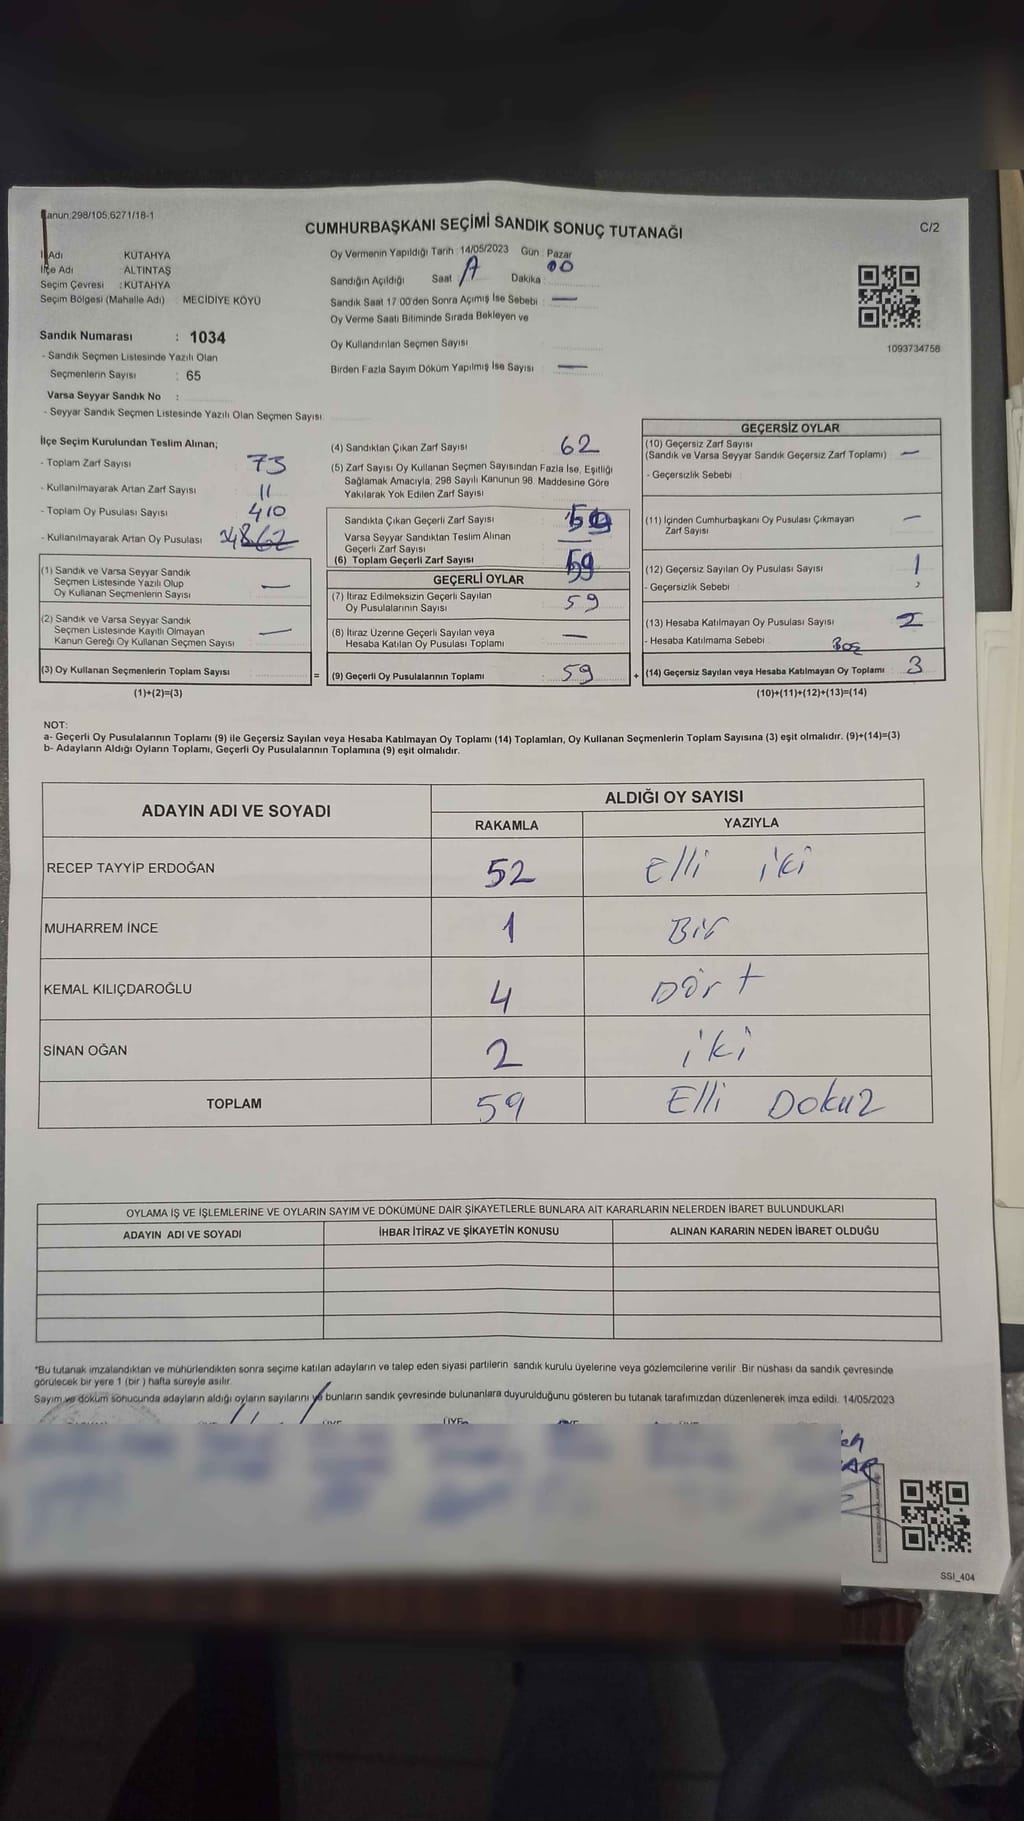 Kanun:298/105,6271/18-1
CUMHURBAŞKANI SEÇİMİ SANDIK SONUÇ TUTANAĞI
C/2
İl Adı KÜTAHYA
İlçe Adı ALTINTAŞ
Seçim Çevresi : KÜTAHYA
Seçim Bölgesi (Mahalle Adı) : MECİDİYE KÖYÜ
Sandık Numarası : 1034
- Sandık Seçmen Listesinde Yazılı Olan
Seçmenlerin Sayısı : 65
Varsa Seyyar Sandık No :
- Seyyar Sandık Seçmen Listesinde Yazılı Olan Seçmen Sayısı
Oy Vermenin Yapıldığı Tarih : 14/05/2023 Gün : Pazar
Sandığın Açıldığı Saat Dakika : 00
Sandık Saat 17:00'den Sonra Açımış İse Sebebi : —
Oy Verme Saati Bitiminde Sırada Bekleyen ve
Oy Kullandırılan Seçmen Sayısı
Birden Fazla Sayım Döküm Yapılmış İse Sayısı : —
1093734756
İlçe Seçim Kurulundan Teslim Alınan;
- Toplam Zarf Sayısı : 73
- Kullanılmayarak Artan Zarf Sayısı : 11
- Toplam Oy Pusulası Sayısı : 410
- Kullanılmayarak Artan Oy Pusulası :
(1) Sandık ve Varsa Seyyar Sandık
Seçmen Listesinde Yazılı Olup
Oy Kullanan Seçmenlerin Sayısı —
(2) Sandık ve Varsa Seyyar Sandık
Seçmen Listesinde Kayıtlı Olmayan
Kanun Gereği Oy Kullanan Seçmen Sayısı —
(3) Oy Kullanan Seçmenlerin Toplam Sayısı
(1)+(2)=(3)
=
(4) Sandıktan Çıkan Zarf Sayısı : 62
(5) Zarf Sayısı Oy Kullanan Seçmen Sayısından Fazla İse, Eşitliği
Sağlamak Amacıyla, 298 Sayılı Kanunun 98. Maddesine Göre
Yakılarak Yok Edilen Zarf Sayısı
Sandıkta Çıkan Geçerli Zarf Sayısı : 59
Varsa Seyyar Sandıktan Teslim Alınan
Geçerli Zarf Sayısı —
(6) Toplam Geçerli Zarf Sayısı : 59
GEÇERLİ OYLAR
(7) İtiraz Edilmeksizin Geçerli Sayılan
Oy Pusulalarının Sayısı : 59
(8) İtiraz Üzerine Geçerli Sayılan veya
Hesaba Katılan Oy Pusulası Toplamı —
(9) Geçerli Oy Pusulalarının Toplamı : 59
+
GEÇERSİZ OYLAR
(10) Geçersiz Zarf Sayısı
(Sandık ve Varsa Seyyar Sandık Geçersiz Zarf Toplamı) : —
- Geçersizlik Sebebi :
(11) İçinden Cumhurbaşkanı Oy Pusulası Çıkmayan
Zarf Sayısı —
(12) Geçersiz Sayılan Oy Pusulası Sayısı : 1
- Geçersizlik Sebebi :
(13) Hesaba Katılmayan Oy Pusulası Sayısı : 2
- Hesaba Katılmama Sebebi : Boş
(14) Geçersiz Sayılan veya Hesaba Katılmayan Oy Toplamı : 3
(10)+(11)+(12)+(13)=(14)
NOT:
a- Geçerli Oy Pusulalarının Toplamı (9) ile Geçersiz Sayılan veya Hesaba Katılmayan Oy Toplamı (14) Toplamları, Oy Kullanan Seçmenlerin Toplam Sayısına (3) eşit olmalıdır. (9)+(14)=(3)
b- Adayların Aldığı Oyların Toplamı, Geçerli Oy Pusulalarının Toplamına (9) eşit olmalıdır.
ADAYIN ADI VE SOYADI ALDIĞI OY SAYISI
RAKAMLA YAZIYLA
RECEP TAYYİP ERDOĞAN 52 Elli iki
MUHARREM İNCE 1 Bir
KEMAL KILIÇDAROĞLU 4 Dört
SİNAN OĞAN 2 iki
TOPLAM 59 Elli Dokuz
OYLAMA İŞ VE İŞLEMLERİNE VE OYLARIN SAYIM VE DÖKÜMÜNE DAİR ŞİKAYETLERLE BUNLARA AİT KARARLARIN NELERDEN İBARET BULUNDUKLARI
ADAYIN ADI VE SOYADI İHBAR İTİRAZ VE ŞİKAYETİN KONUSU ALINAN KARARIN NEDEN İBARET OLDUĞU
*Bu tutanak imzalandıktan ve mühürlendikten sonra seçime katılan adayların ve talep eden siyasi partilerin sandık kurulu üyelerine veya gözlemcilerine verilir. Bir nüshası da sandık çevresinde
görülecek bir yere 1 (bir ) hafta süreyle asılır.
Sayım ve döküm sonucunda adayların aldığı oyların sayılarını ve bunların sandık çevresinde bulunanlara duyurulduğunu gösteren bu tutanak tarafımızdan düzenlenerek imza edildi. 14/05/2023
ÜYE
SSI_404